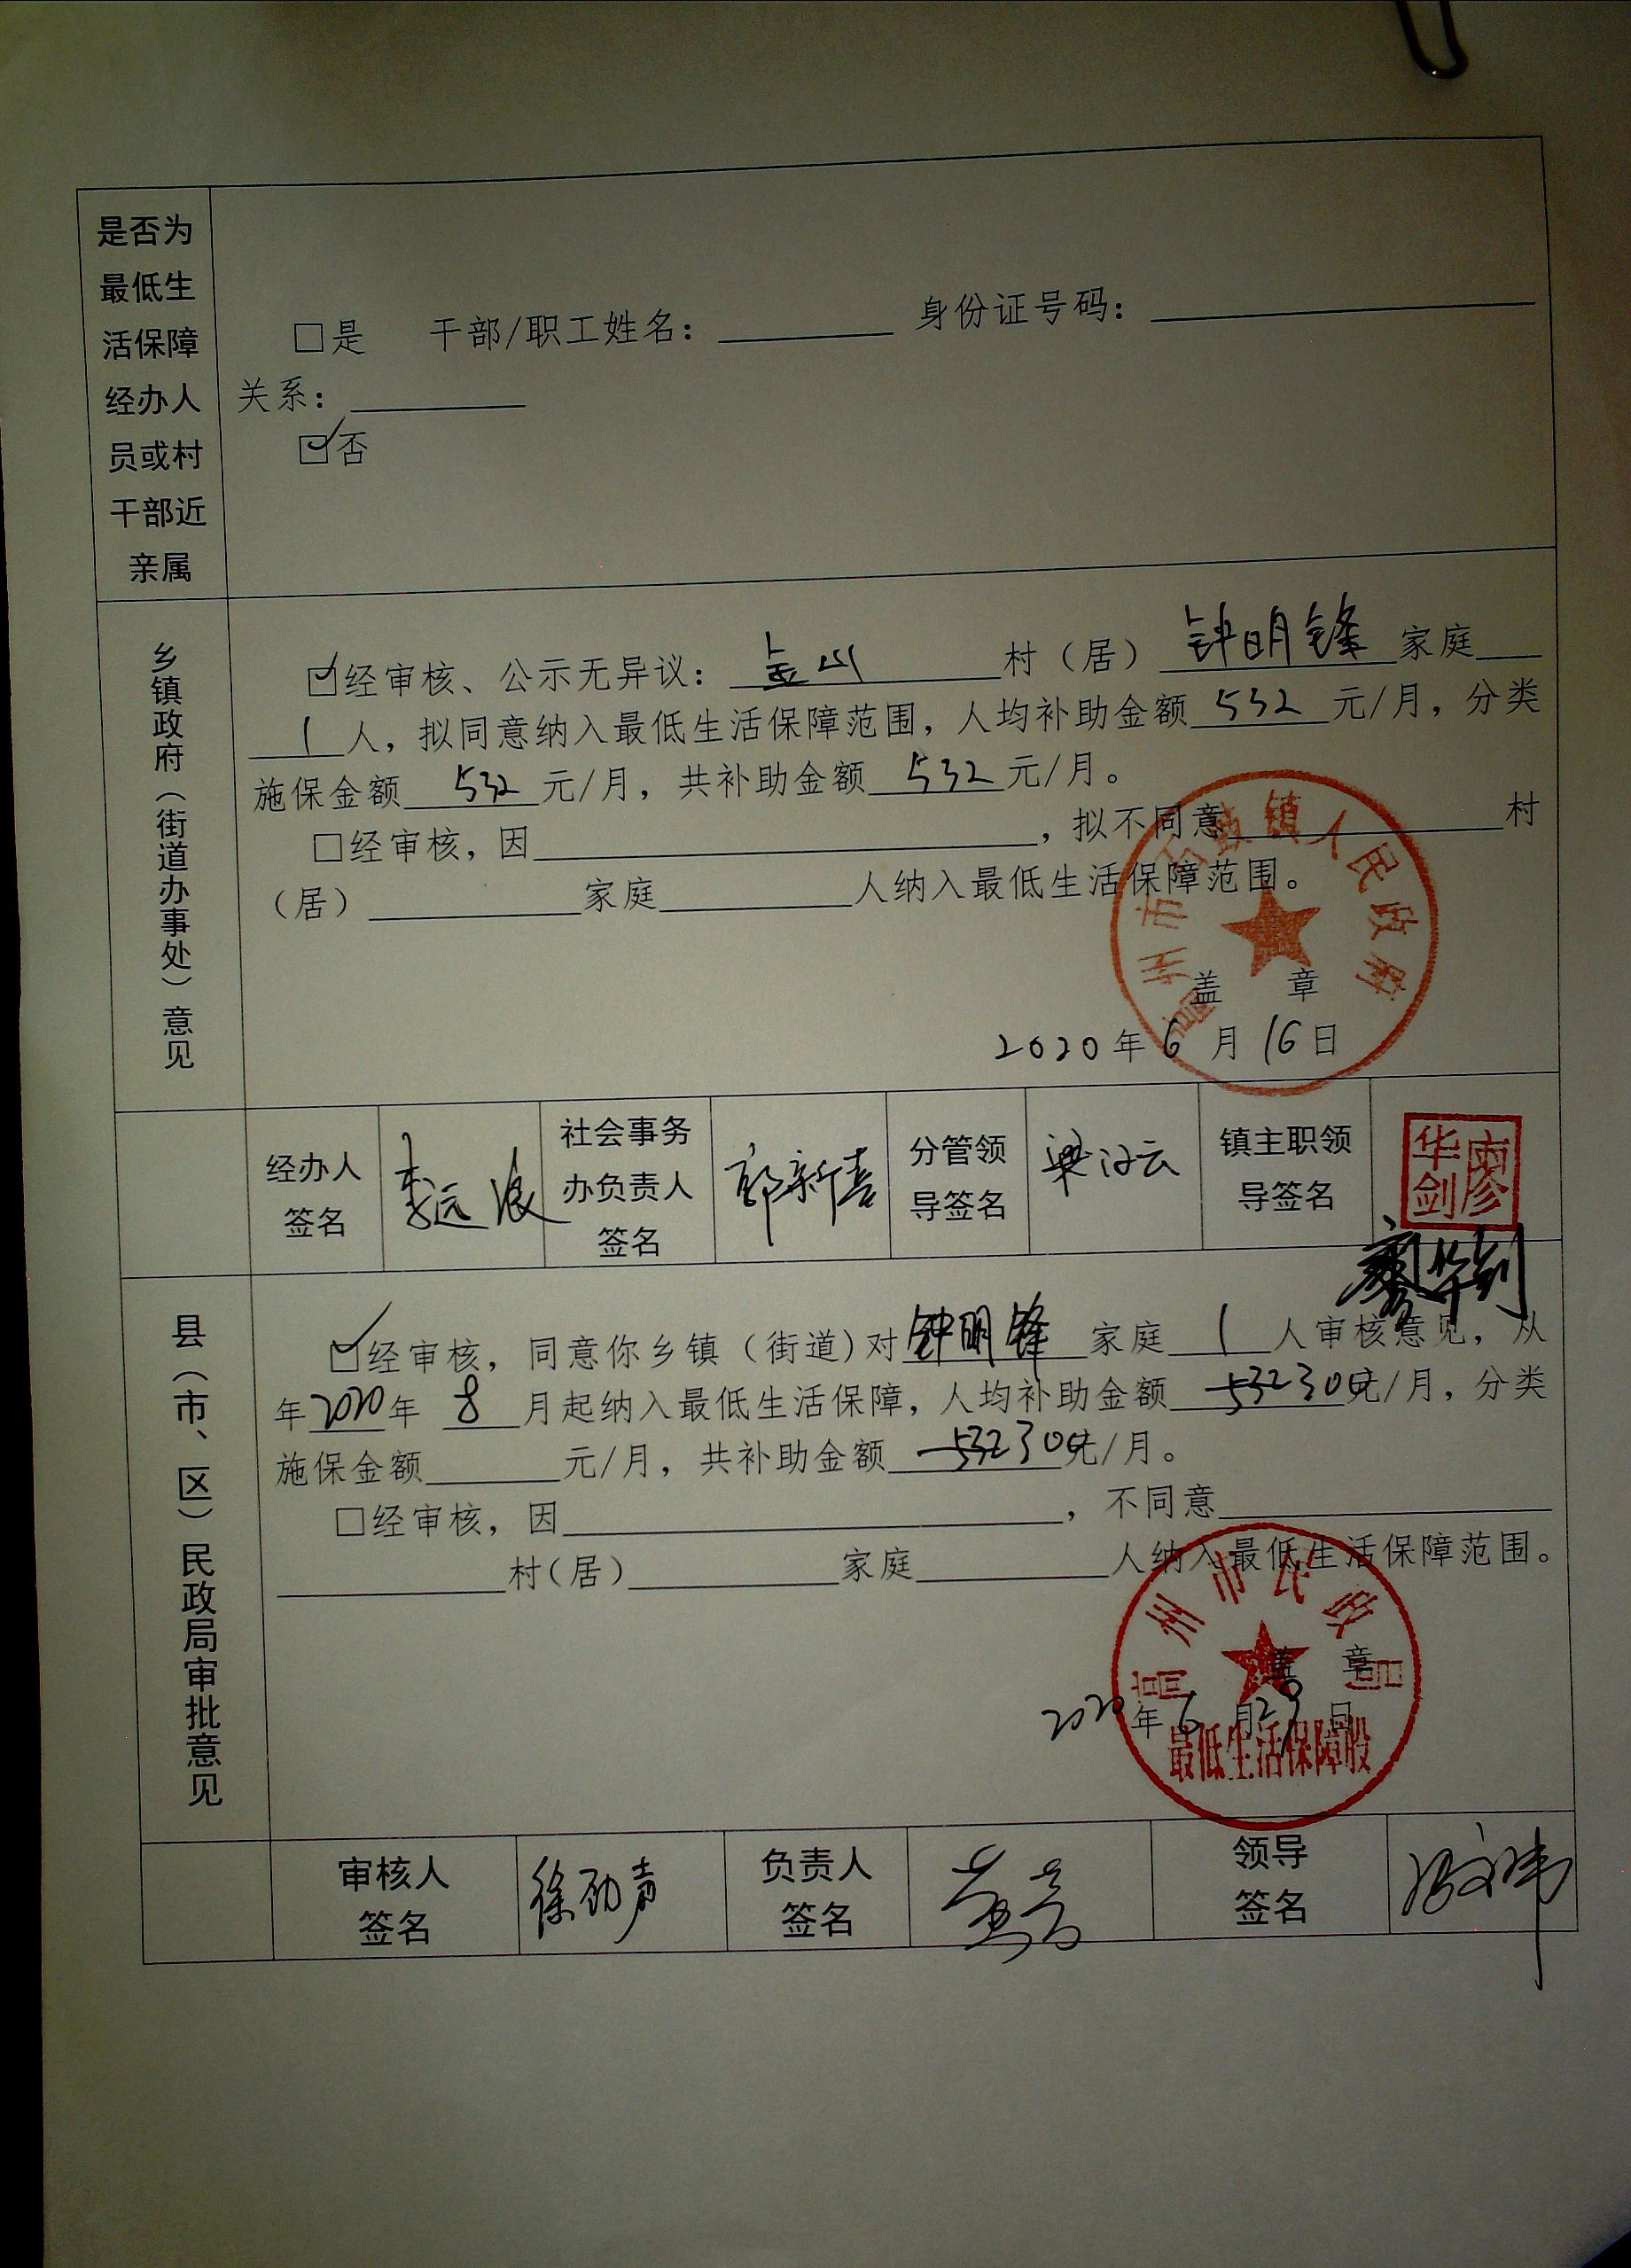 是否为
最低生
活保障
经办人
员或村
干部近
亲属
□是 干部/职工姓名：________ 身份证号码：________
关系：________
☑否
乡镇政府（街道办事处）意见
☑经审核、公示无异议：金山村（居）钟明锋家庭
1人，拟同意纳入最低生活保障范围，人均补助金额532元/月，分类
施保金额532元/月，共补助金额532元/月。
□经审核，因________，拟不同意________村
（居）________家庭________人纳入最低生活保障范围。
州市 镇人民政府
盖 章
2020年6月16日
经办人
签名
李远浪
社会事务
办负责人
签名
郭新喜
分管领
导签名
梁汉云
镇主职领
导签名
廖华剑
廖华剑
县（市、区）民政局审批意见
☑经审核，同意你乡镇（街道)对钟明锋家庭1人审核意见，从
年2020年8月起纳入最低生活保障，人均补助金额532 300元/月，分类
施保金额________元/月，共补助金额532 300元/月。
□经审核，因________，不同意________
________村(居)________家庭________人纳入最低生活保障范围。
高州市民政局
盖 章
2020年6月29日
最低生活保障股
审核人
签名
徐劲声
负责人
签名
领导
签名